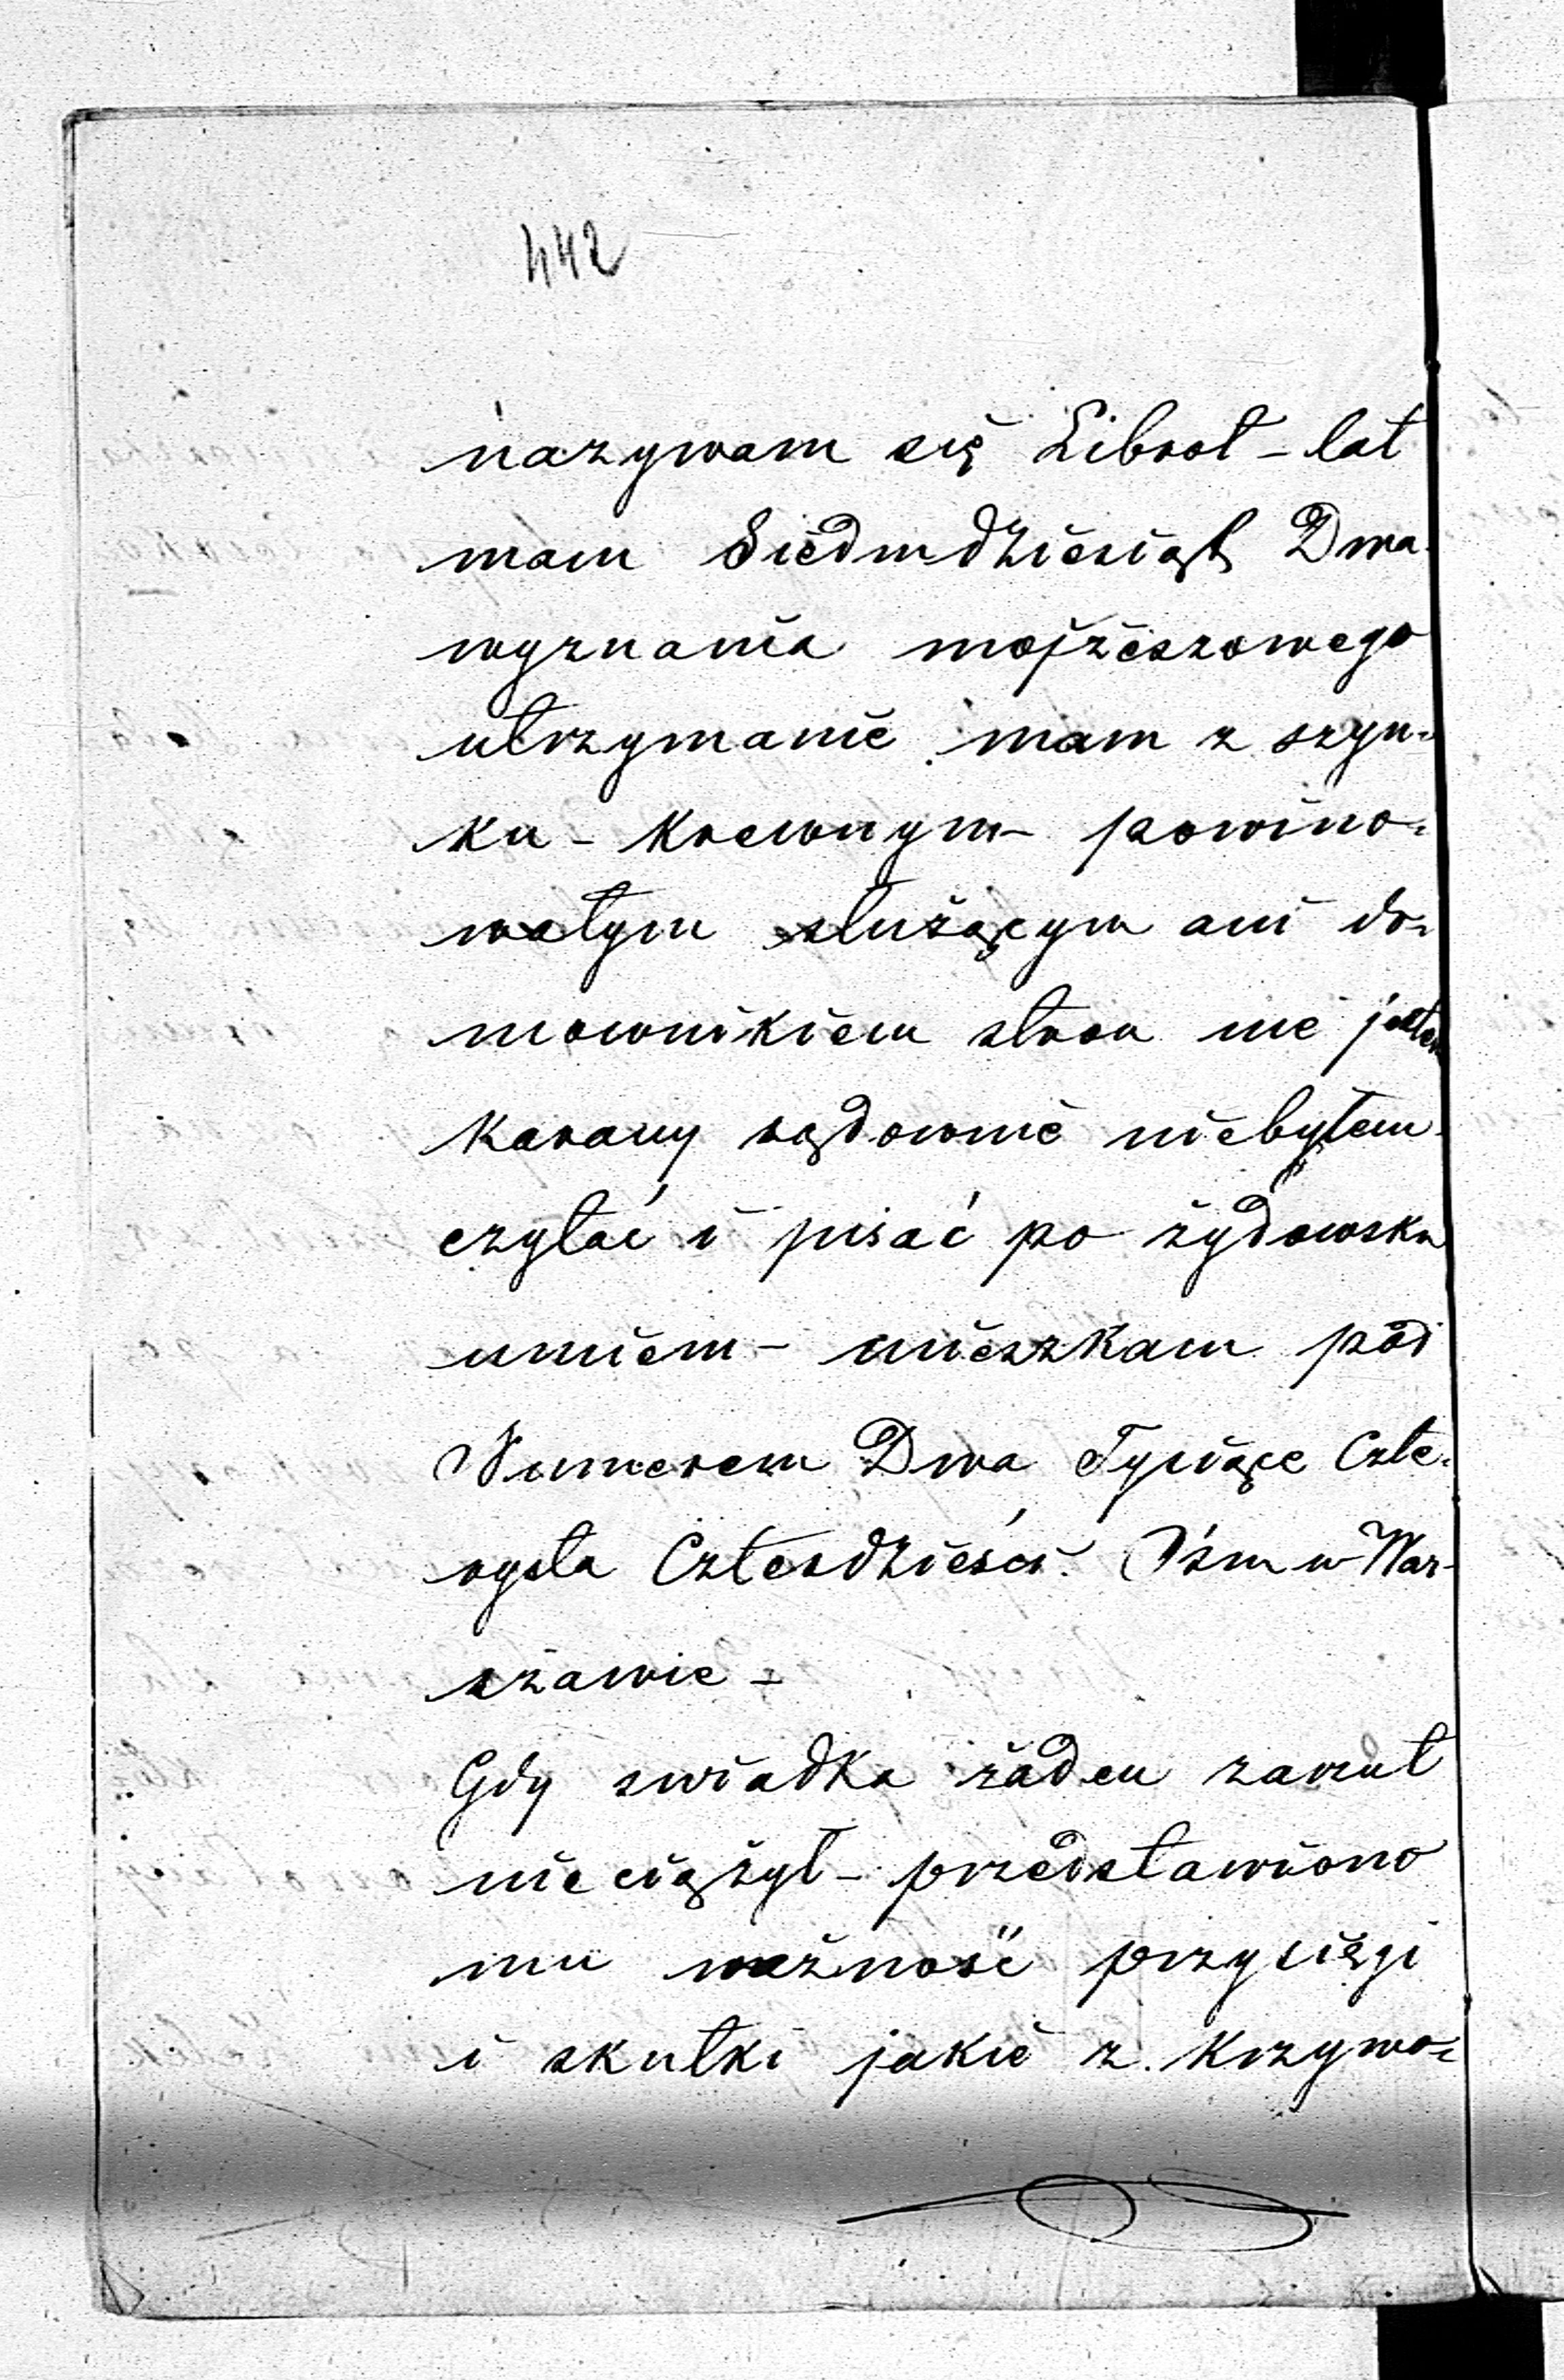 442
nazywam się Librot - lat
mam Siedmdziesiąt Dwa
wyznania mojżeszowego
utrzymanie mam z szyn-
ku - krewnym - powino-
watym służącym ani do-
mownikiem stron nie jestem
karany sądownie niebyłem
czytać i pisać po żydowsku
umiem - mieszkam pod
Numerem Dwa Tysiące Czte-
rysta Czterdzieści Ośm w War-
szawie -
Gdy swiadka żaden zarzut
nieciążył - przedstawiono
mu ważność przysięgi
i skutki jakie z krzywo-